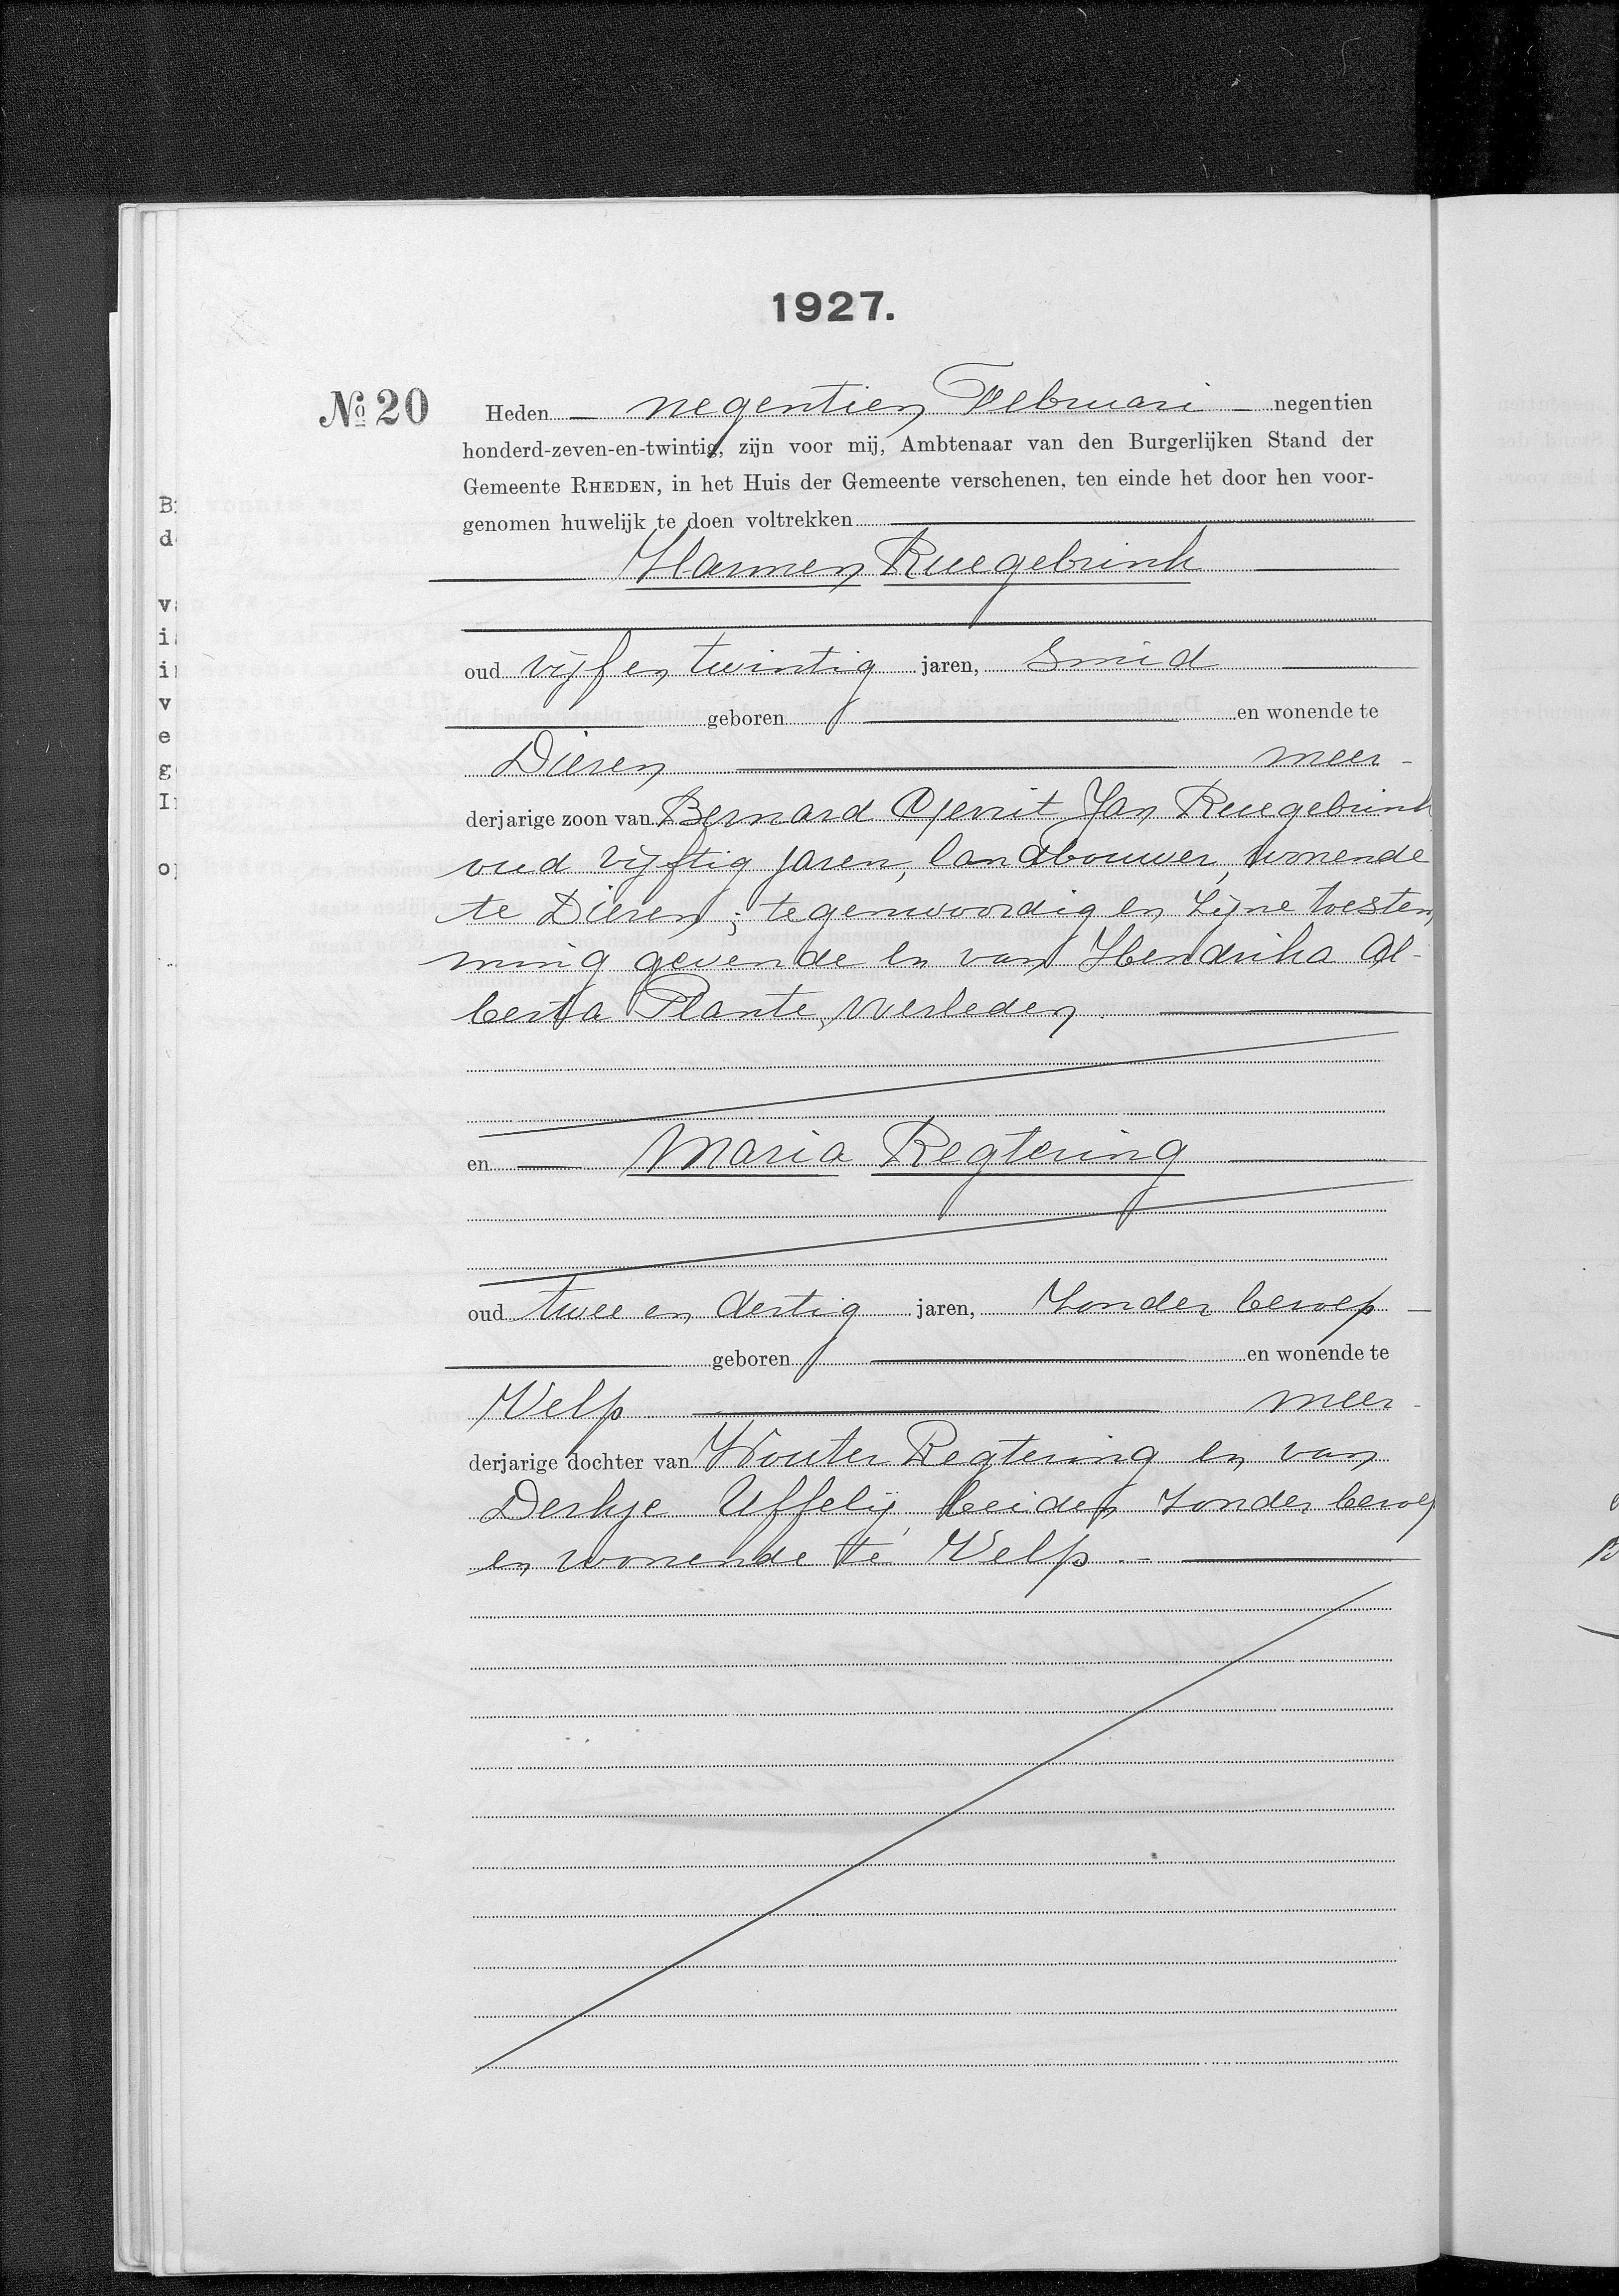 1927.
№ 20
Heden negentien Februari negentien
honderd-zeven-en-twintig, zijn voor mij, Ambtenaar van den Burgerlijken Stand der
Gemeente RHEDEN, in het Huis der Gemeente verschenen, ten einde het door hen voor-
genomen huwelijk te doen voltrekken
Harmen Ruegebrink
oud vijf en twintig jaren, Smid
geboren en wonende te
Dieren meer-
derjarige zoon van Bernard Gerrit Jan Ruegebrink
oud vijftig jaren, landbouwer, wonende
te Dieren; tegenwoordig en zijne toestem
ming gevende en van Hendrika Al-
berta Plante, overleden.
en Maria Regtering
oud twee en dertig jaren, zonder beroep
geboren en wonende te
Velp meer-
derjarige dochter van Wouter Regtering en van
Derkje Uffelij, beiden zonder beroep
en wonende te Velp.